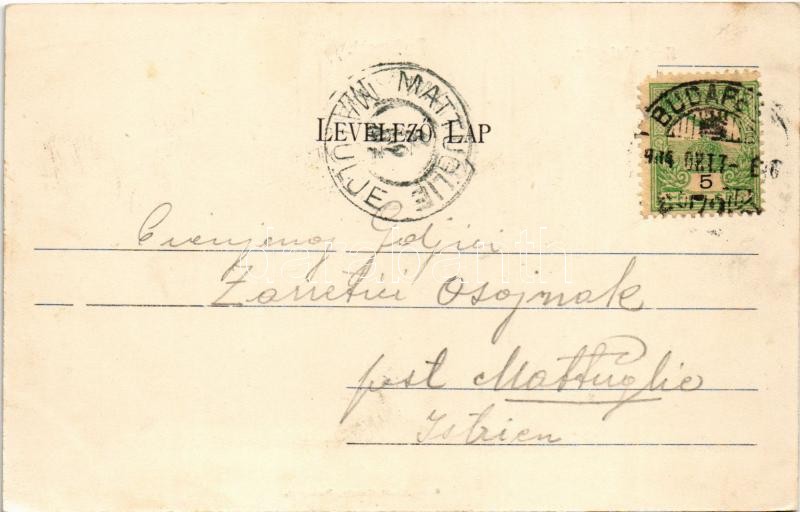 LEVELEZŐ LAP
MATTUGLIE
MATULJE
BUDAPE
904 OKT 7
5
Cienjenoj Gdjici
Zarretici Osojnak
post Mattuglie
Istrien